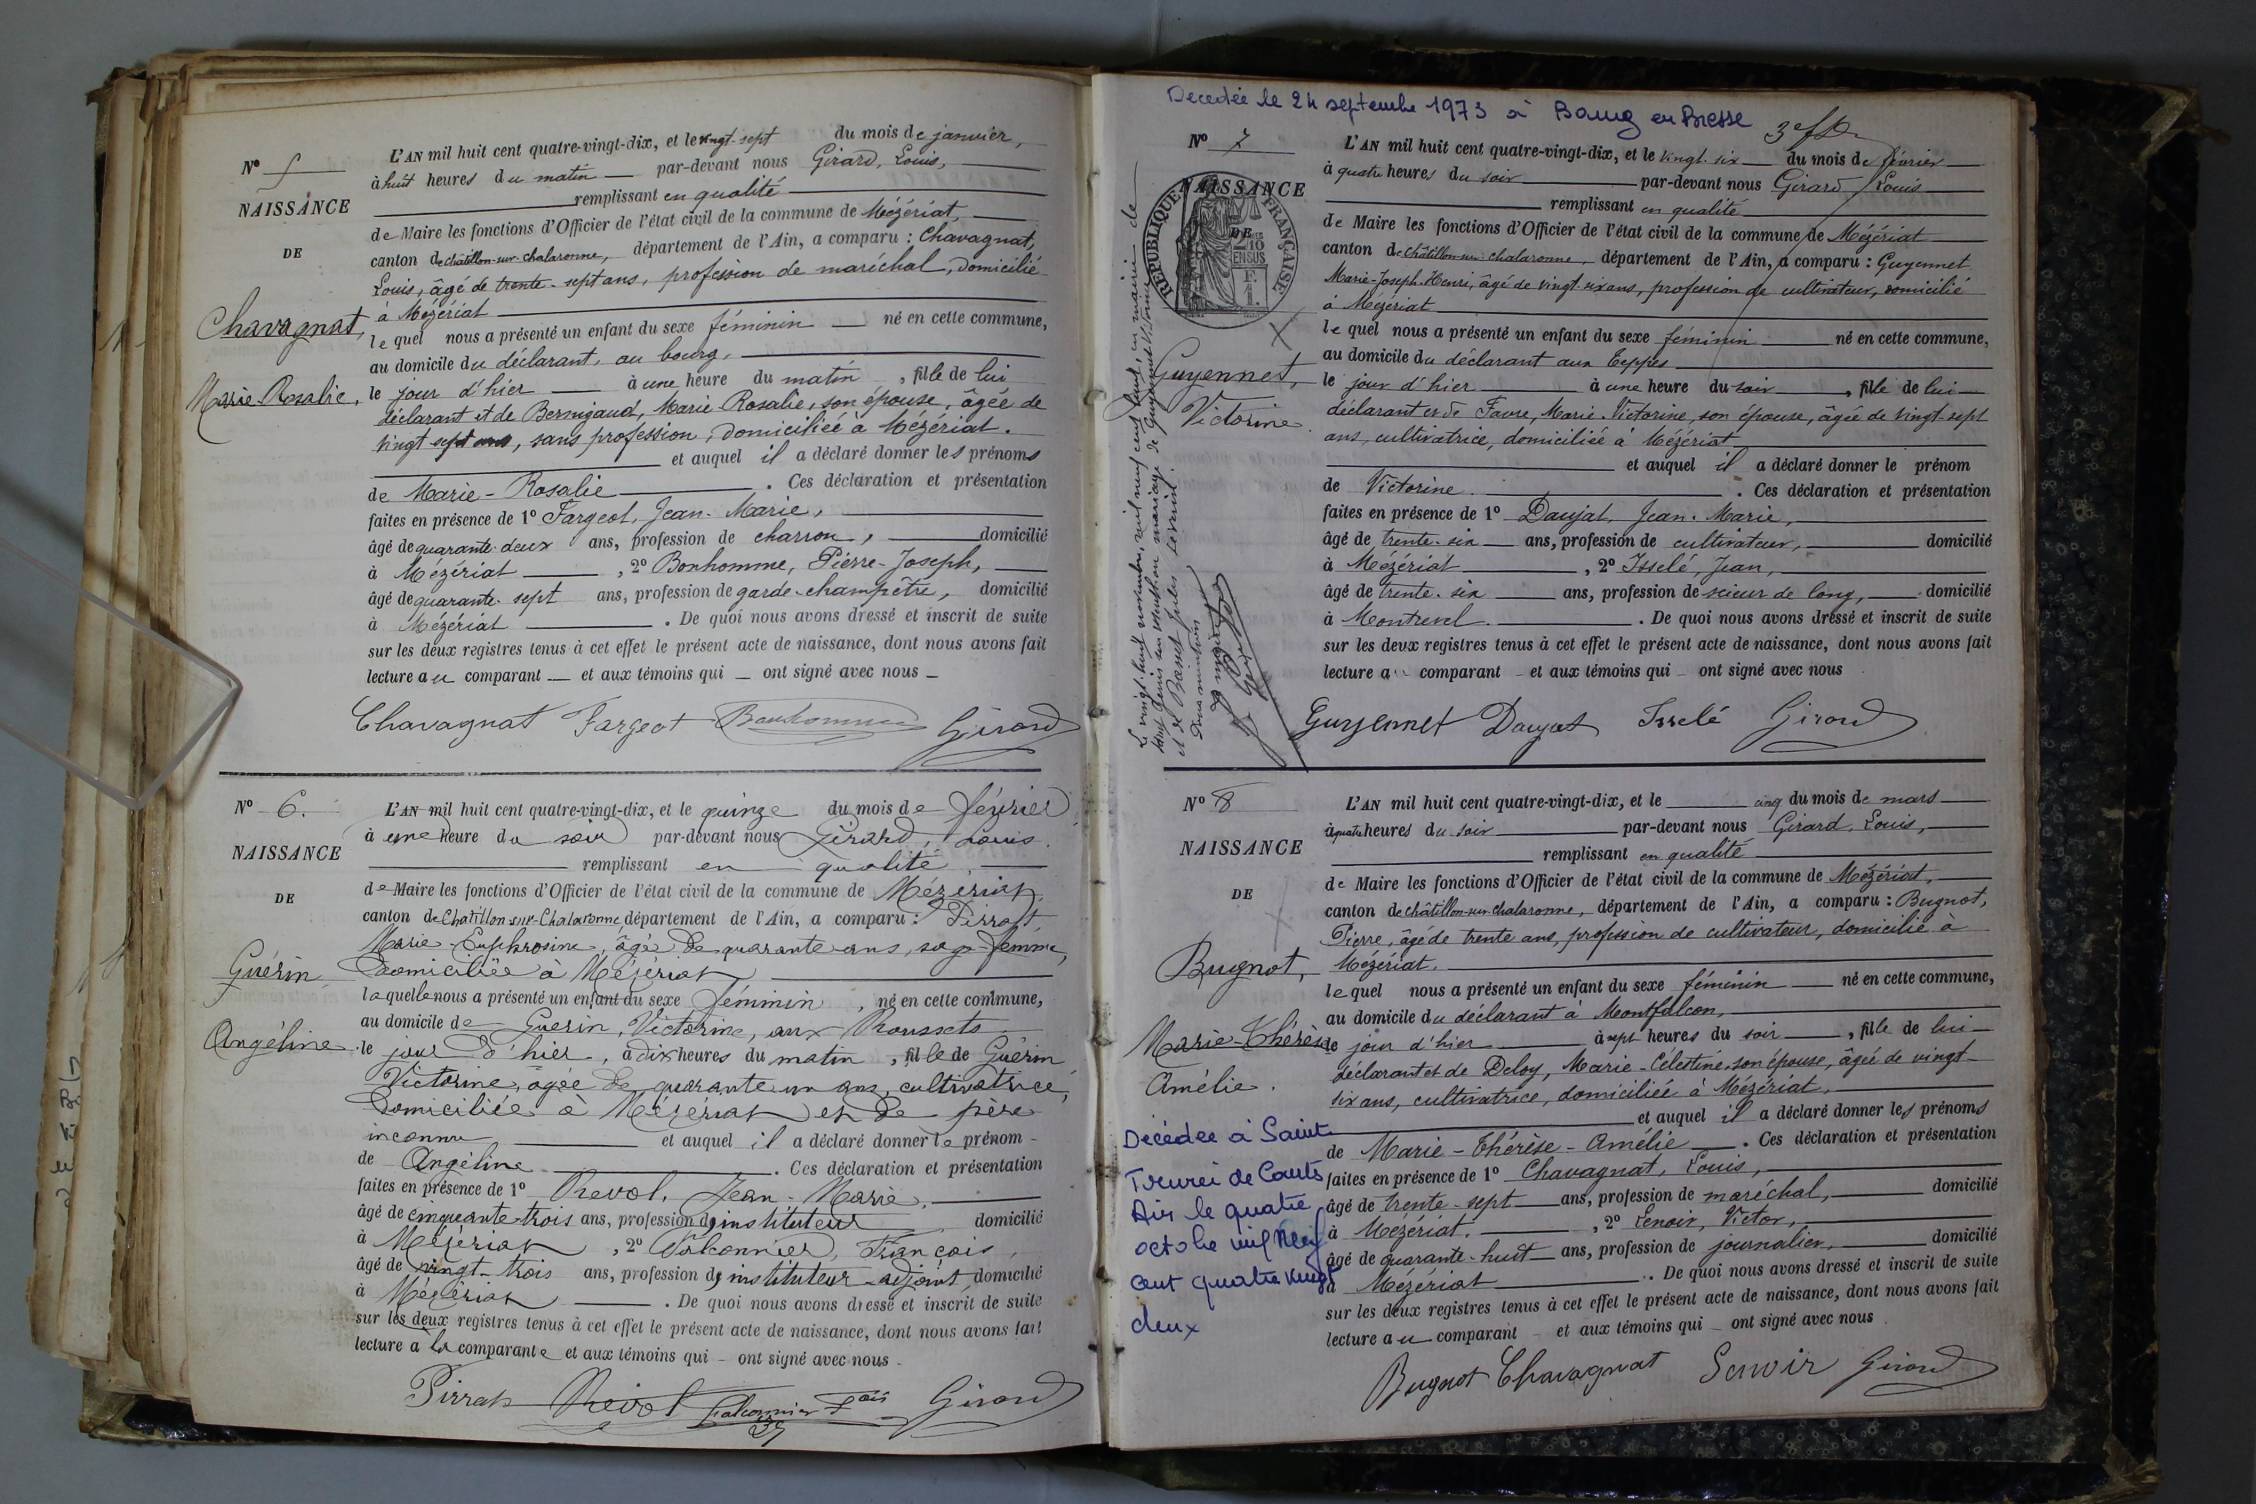 N° 5
NAISSANCE
DE
Chavagnat,
Marie-Rosalie,
L'AN mil huit cent quatre-vingt-dix, et le vingt-sept du mois de janvier,
à huit heures du matin par-devant nous Girard, Louis,
remplissant en qualité
de Maire les fonctions d'Officier de l'état civil de la commune de Mézériat,
canton de Châtillon-sur-Chalaronne, département de l'Ain, a comparu : Chavagnat,
Louis, âgé de trente-sept ans, profession de maréchal, domicilié
à Mézériat
lequel nous a présenté un enfant du sexe féminin né en cette commune,
au domicile du déclarant, au bourg,
le jour d'hier à une heure du matin, fille de lui
déclarant et de Bernigaud, Marie Rosalie, son épouse, âgée de
vingt-sept ans, sans profession, domiciliée à Mézériat.
et auquel il a déclaré donner les prénoms
de Marie-Rosalie. Ces déclaration et présentation
faites en présence de 1° Fargeot, Jean-Marie,
âgé de quarante-deux ans, profession de charron, domicilié
à Mézériat, 2° Bonhomme, Pierre-Joseph,
âgé de quarante-sept ans, profession de garde-champêtre, domicilié
à Mézériat. De quoi nous avons dressé et inscrit de suite
sur les deux registres tenus à cet effet le présent acte de naissance, dont nous avons fait
lecture au comparant et aux témoins qui ont signé avec nous
Chavagnat Fargeot Bonhomme Girard
N° 6.
NAISSANCE
DE
Guérin
Angéline
L'AN mil huit cent quatre-vingt-dix, et le quinze du mois de février
à une heure du soir par-devant nous Girard, Louis.
remplissant en qualité
de Maire les fonctions d'Officier de l'état civil de la commune de Mézériat,
canton de Châtillon-sur-Chalaronne département de l'Ain, a comparu : Pirrat
Marie-Euphrosine, âgée de quarante ans, sage-femme,
domiciliée à Mézériat
laquelle nous a présenté un enfant du sexe féminin, né en cette commune,
au domicile de Guérin, Victorine, aux Roussets
le jour d'hier, à dix heures du matin, fille de Guérin
Victorine, âgée de quarante un ans, cultivatrice,
domiciliée à Mézériat et de père
inconnu et auquel il a déclaré donner le prénom
de Angéline. Ces déclaration et présentation
faites en présence de 1° Revol, Jean-Marie,
âgé de cinquante-trois ans, profession d'instituteur domicilié
à Mézériat, 2° Falconnier, François,
âgé de vingt-trois ans, profession d'instituteur-adjoint, domicilié
à Mézériat. De quoi nous avons dressé et inscrit de suite
sur les deux registres tenus à cet effet le présent acte de naissance, dont nous avons fait
lecture à la comparante et aux témoins qui ont signé avec nous
Pirrat Revol Falconnier Fçois Girard
Decedée le 24 septembre 1973 à Bourg en Bresse
N° 7
NAISSANCE
DE
RÉPUBLIQUE FRANÇAISE
Guyennet,
Victorine.
L'AN mil huit cent quatre-vingt-dix, et le vingt-six du mois de février
à quatre heures du soir par-devant nous Girard, Louis
remplissant en qualité
de Maire les fonctions d'Officier de l'état civil de la commune de Mézériat
canton de Châtillon-sur-Chalaronne, département de l'Ain, a comparu : Guyennet
Marie-Joseph-Henri, âgé de vingt-six ans, profession de cultivateur, domicilié
à Mézériat
lequel nous a présenté un enfant du sexe féminin né en cette commune,
au domicile du déclarant aux Teppes
le jour d'hier à une heure du soir, fille de lui
déclarant et de Favre, Marie-Victorine, son épouse, âgée de vingt-sept
ans, cultivatrice, domiciliée à Mézériat
et auquel il a déclaré donner le prénom
de Victorine. Ces déclaration et présentation
faites en présence de 1° Daujat, Jean-Marie,
âgé de trente-six ans, profession de cultivateur, domicilié
à Mézériat, 2° Isselé, Jean,
âgé de trente-six ans, profession de scieur de long, domicilié
à Montrevel. De quoi nous avons dressé et inscrit de suite
sur les deux registres tenus à cet effet le présent acte de naissance, dont nous avons fait
lecture au comparant et aux témoins qui ont signé avec nous
Guyennet Daujat Isselé Girard
N° 8
NAISSANCE
DE
Bugnot,
Marie-Thérèse
Amélie.
Décédée à Saint
Trivier de Courts
Ain le quatre
octobre mil neuf
cent quatre vingt
deux
L'AN mil huit cent quatre-vingt-dix, et le cinq du mois de mars
à quatre heures du soir par-devant nous Girard, Louis,
remplissant en qualité
de Maire les fonctions d'Officier de l'état civil de la commune de Mézériat,
canton de Châtillon-sur-Chalaronne, département de l'Ain, a comparu : Bugnot,
Pierre, âgé de trente ans, profession de cultivateur, domicilié à
Mézériat.
lequel nous a présenté un enfant du sexe féminin né en cette commune,
au domicile du déclarant à Montfalcon,
le jour d'hier à sept heures du soir, fille de lui
déclarant et de Deloy, Marie-Célestine, son épouse, âgée de vingt-
six ans, cultivatrice, domiciliée à Mézériat,
et auquel il a déclaré donner les prénoms
de Marie-Thérèse-Amélie. Ces déclaration et présentation
faites en présence de 1° Chavagnat, Louis,
âgé de trente-sept ans, profession de maréchal, domicilié
à Mézériat, 2° Lenoir, Victor,
âgé de quarante-huit ans, profession de journalier, domicilié
à Mézériat. De quoi nous avons dressé et inscrit de suite
sur les deux registres tenus à cet effet le présent acte de naissance, dont nous avons fait
lecture au comparant et aux témoins qui ont signé avec nous
Bugnot Chavagnat Lenoir Girard